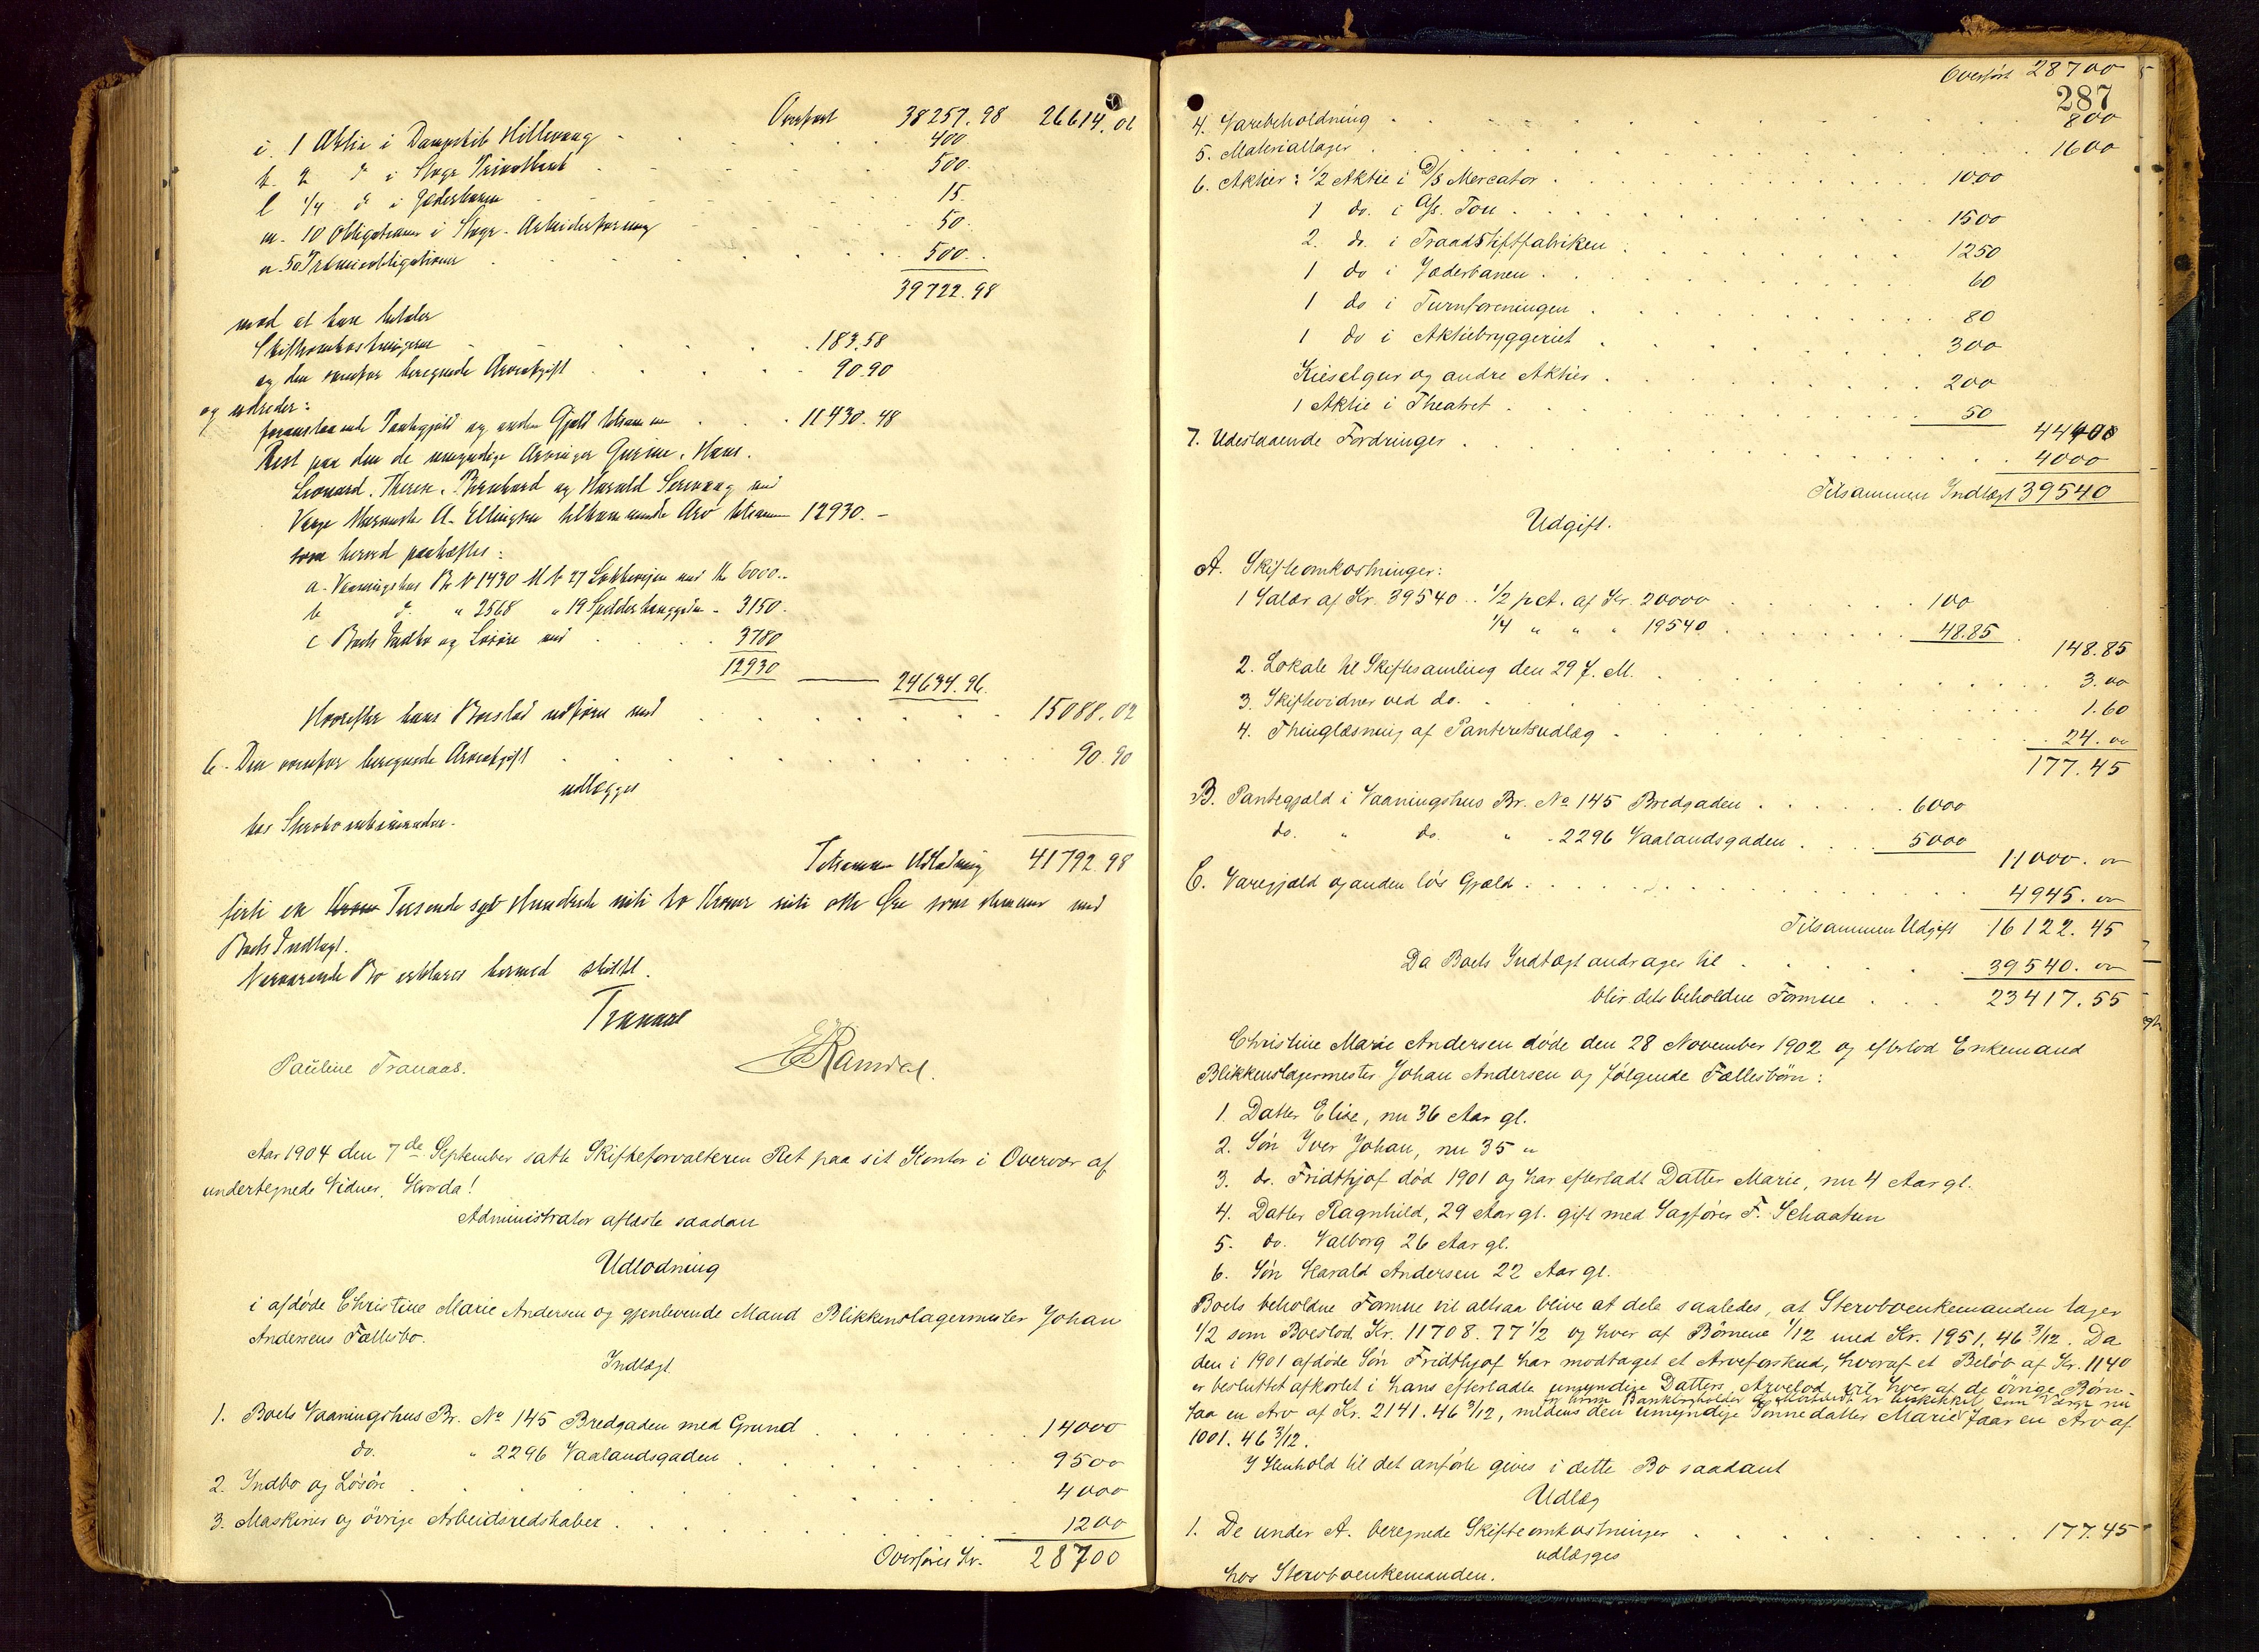 Overført 38257.98 26614.06
i. 1 Aktie i Dampskib Hillevaag 400
k. 2 do i Stvgr Privatbank 500.
l 1/4 do i Jæderbanen 15
m. 10 Obligationer i Stvgr. Arbeiderforening 50.
n. 50 Præmieobligationer 500..
39722.98
mod at han betaler
Skifteomkostningerne 183.58
og den ovenfor beregnede Arveafgift 90.90
og udreder:
foranstaaende Pantegjæld og anden Gjæld tilsammen 11430.48
Rest paa den de umyndige Arvinger Gurine, Hans,
Leonard, Therese, Bernhard og Harald
Verge A. Ellingsen tilkommende Arv tilsammen 12930.–
som herved paahæftes:
a. Vaaningshus Br. № 1430 M № 27 Løkkeveien med Kr 6000..
b do " 2568 " 19 - 3150.
c Boets Indbo og Løsøre med 3780
12930 24634.96.
Hvorefter hans Boeslod udføres med 15088.02
6. Den ovenfor beregnede Arveafgift 90.90
udlægges
hos Stervboenkemanden.
Tilsammen Udlodning 41792.98
firti en Tusende syv Hundrede nitti to Kroner nitti otte Øre som stemmer med
Boets Indtægt.
Nærværende Bo erklæres hermed sluttet.
Tranaas
Pauline Tranaas. Ramdal.
Aar 1904 den 7de September satte Skifteforvalteren Ret paa sit Kontor i Overvær af
undertegnede Vidner. Hvorda!
Administrator aflæste saadan
Udlodning
i afdøde Christine Marie Andersen og gjenlevende Mand Blikkenslagermester Johan
Andersens Fællesbo.
Indtægt.
1. Boets Vaaningshus Br. № 145 Bredgaden med Grund 14000
do. " 2296 Vaalandsgaden 9500
2. Indbo og Løsøre 4000
3. Maskiner og øvrige Arbeidsredskaber 1200
Overføres Kr. 28700
Overført 28700
287
4. Varebeholdning 800
5. Materiallager 1600
6. Aktier: 1/2 Aktie i D/S Mercator 1000
1 do. i A/S. Tou 1500
2. do. i Traadstiftfabriken 1250
1 do i Jæderbanen 60
1 do i Turnforeningen 80
1 do i Aktiebryggeriet 300
Kieselgur og andre Aktier 200
1 Aktie i Theatret 50
4440
7. Udestaaende Fordringer 4000
Tilsammen Indtægt 39540
Udgift.
A. Skifteomkostninger:
1 Salær af Kr. 39540.. 1/2 pct. af Kr. 20000 100
1/4 " " " 19540 48.85 148.85
2. Lokale til Skiftesamling den 29 f. M. 3.00
3. Skiftevidner ved do. 1.60
4. Thinglæsning af Panteretsudlæg 24.00
177.45
B. Pantegjæld i Vaaningshus Br. № 145 Bredgaden 6000
do. " do. " 2296 Vaalandsgaden 5000
11000.00
C. Varegjæld og anden løs Gjæld 4945.00
Tilsammen Udgift 16122.45
Da Boets Indtægt andrager til 39540.00
blir dets beholdne Formue 23417.55
Christine Marie Andersen døde den 28 November 1902 og efterlod Enkemand
Blikkenslagermester Johan Andersen og følgende Fællesbørn:
1. Datter Elise, nu 36 Aar gl.
2. Søn Iver Johan, nu 35 "
3. do. Fridthjof død 1901 og har efterladt Datter Marie, nu 4 Aar gl.
4. Datter Ragnhild, 29 Aar gl. gift med Sagfører F. Schaatun
5. do. Valborg 26 Aar gl.
6. Søn Harald Andersen 22 Aar gl.
Boets beholdne Formue vil altsaa blive at dele saaledes, at Stervboenkemanden tager
1/2 som Boeslod Kr. 11708.77 1/2 og hver af Børnene 1/12 med Kr. 1951.46 3/12. Da
den i 1901 afdøde Søn Fridthjof har modtaget et Arveforskud, hvoraf et Beløb af Kr. 1140
er besluttet afkortet i hans efterladte umyndige Datters Arvelod vil hver af de øvrige Børn
for hvem Bankbogholder er beskikket som Verge nu
faa en Arv af Kr. 2141.46 3/12, medens den umyndige Sønnedatter Marie faar en Arv af
1001.46 3/12.
I Henhold til det anførte gives i dette Bo saadant
Udlæg
1. De under A. beregnede Skifteomkostninger 177.45
udlægges
hos Stervboenkemanden.